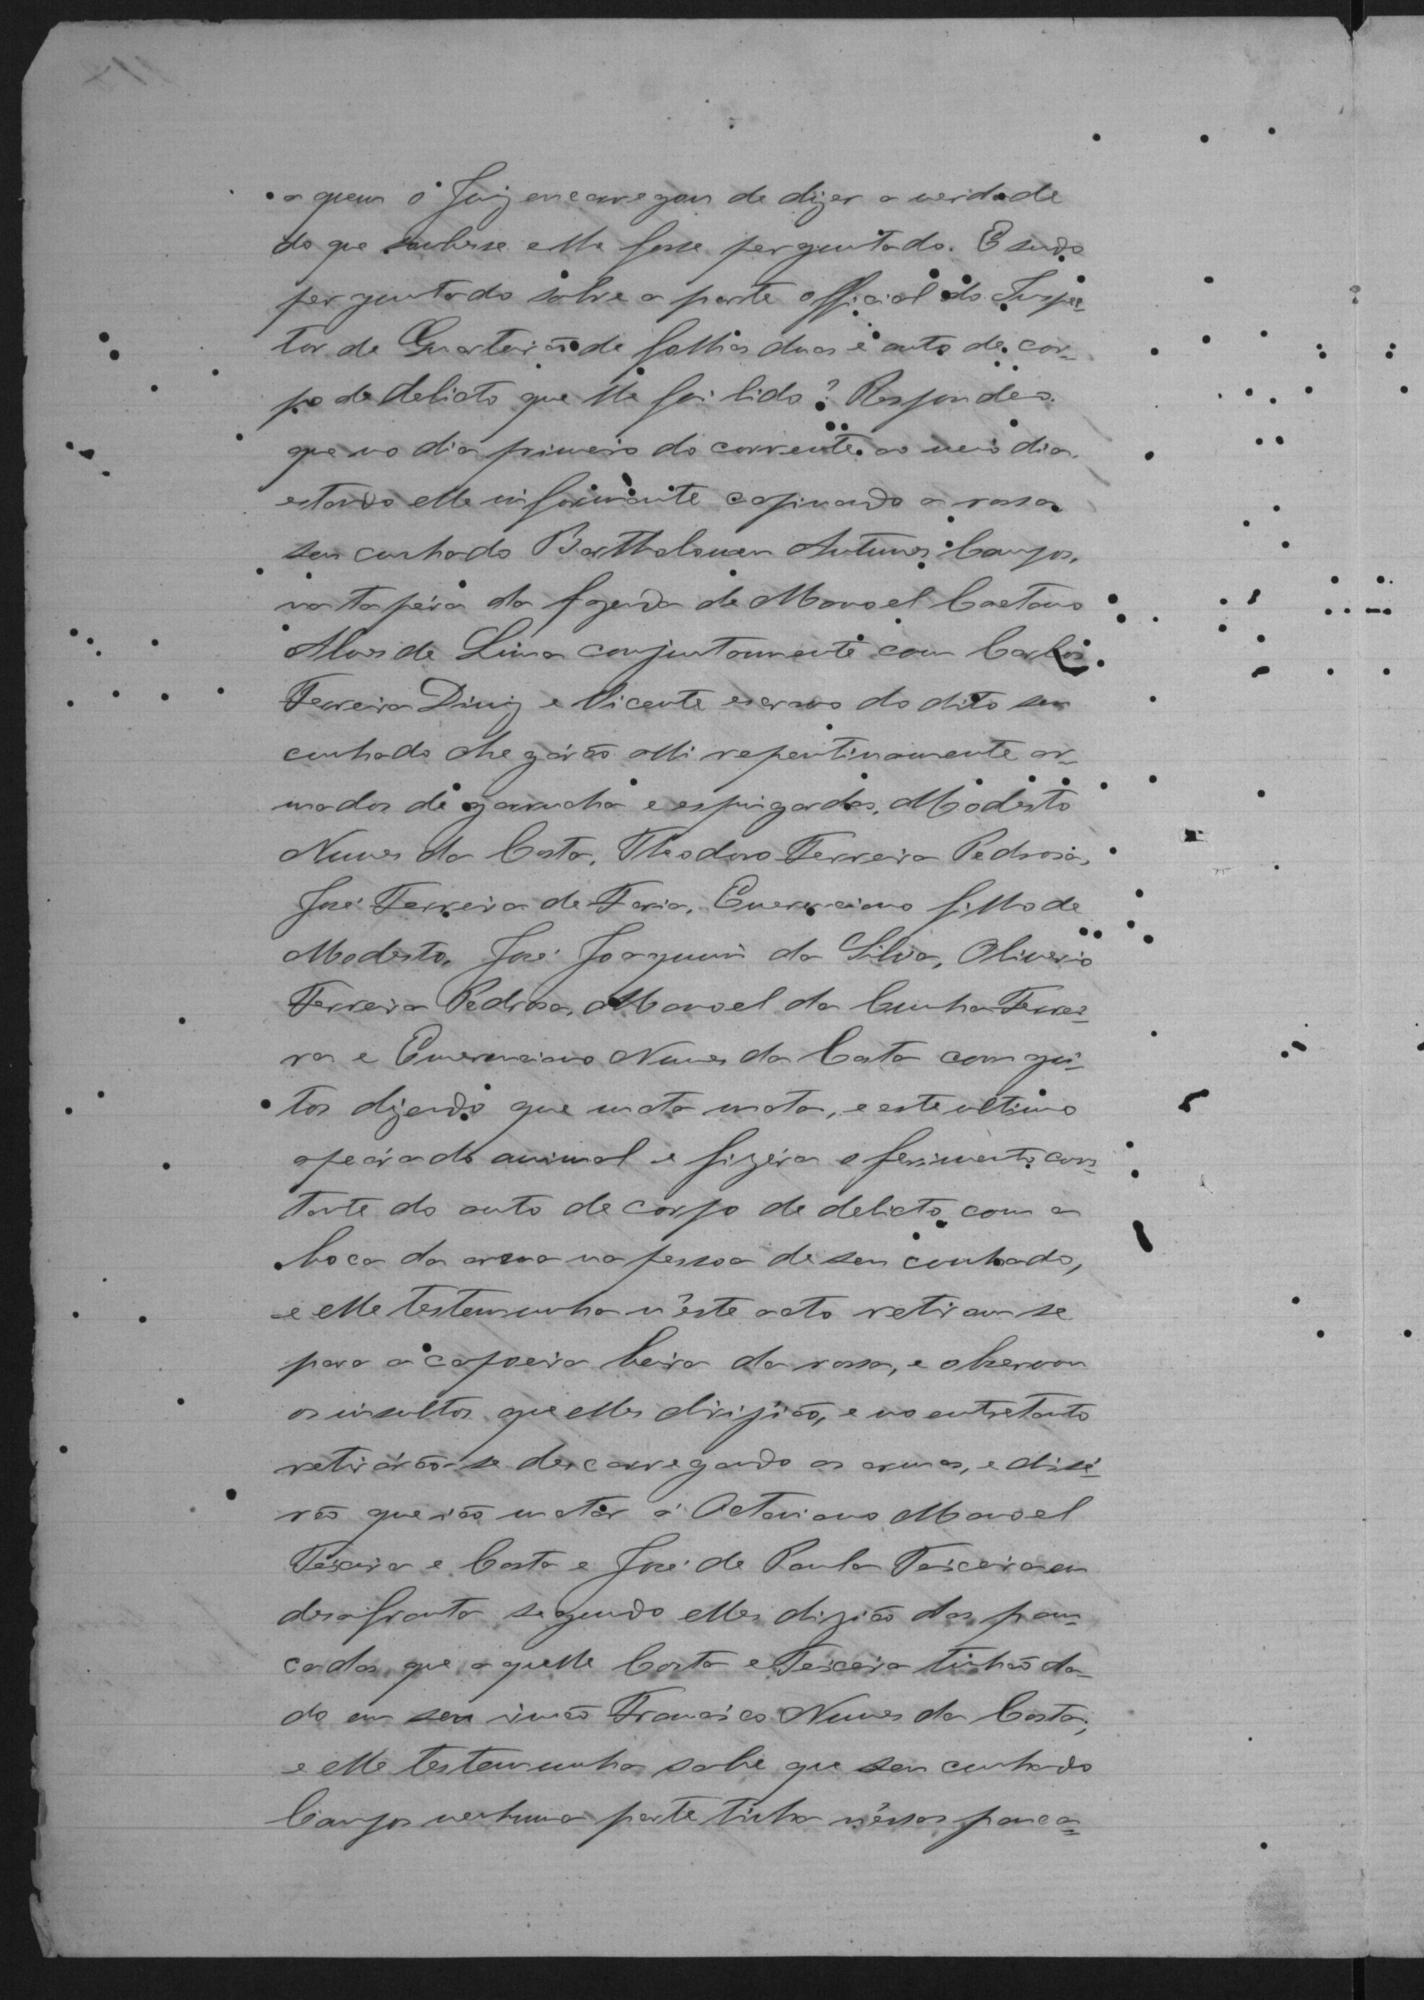 a quem o Juiz encarregou de dizer a verdade
do que soubesse e lhe fosse perguntado. E sendo
perguntado sobre a parte official do Inspec-
tor de Quarteirão de folhas duas e auto de cor-
po de delicto que lhe foi lido? Respondeo
que no dia primeiro do corrente ao meio dia
estando elle informante capinando a rossa
seu cunhado Bartholomeu Antunes Campos,
na tapéra da fazenda de Manoel Caetano
Alves de Lima conjuntamente com Carlos
Ferreira Diniz e Vicente escravo do dito seu
cunhado chegárão alli repentinamente ar-
mados de garrucha e espingardas, Modesto
Nunes da Costa, Theodoro Ferreira Pedrosa,
José Ferreira de Faria, Emerenciano filho de
Modesto, José Joaquim da Silva, Oliverio
Ferreira Pedrosa, Manoel da Cunha Ferrei-
ra e Emerenciano Nunes da Costa com gri-
tos dizendo que mata mata, e este ultimo
apeára do animal e fizéra o ferimento cons-
tante do auto de corpo de delicto com a
boca da arma na pessoa de seu cunhado,
e elle testemunha n'éste acto retirou se
para a capoeira beira da rossa, e observou
os insultos que elles dirigião, e no entretanto
retirárão-se descarregando as armas, e dissé-
rão que ião matar á Octaviano Manoel
Teixeira e Costa e José de Paula Teixeira em
desafronta segundo elles dizião das pan-
cadas que aquelle Costa e Teixeira tinhão da-
do em seu irmão Francisco Nunes da Costa,
e elle testemunha sabe que seu cunhado
Campos nenhuma parte tinha n'éssas panca-